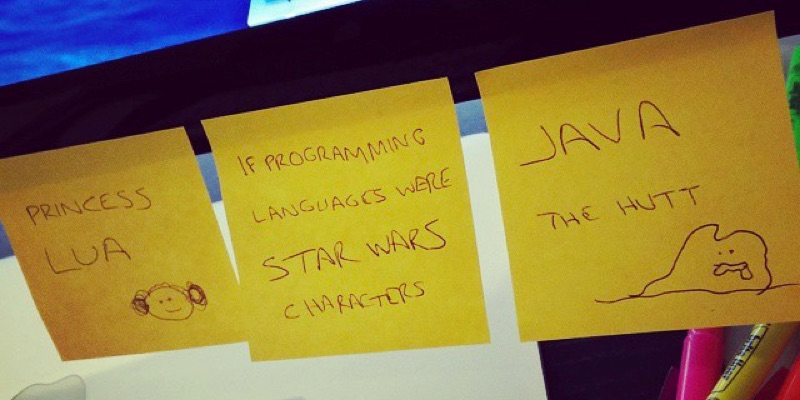 PRINCESS
LUA
IF PROGRAMMING
LANGUAGES WERE
STAR WARS
CHARACTERS
JAVA
THE HUTT